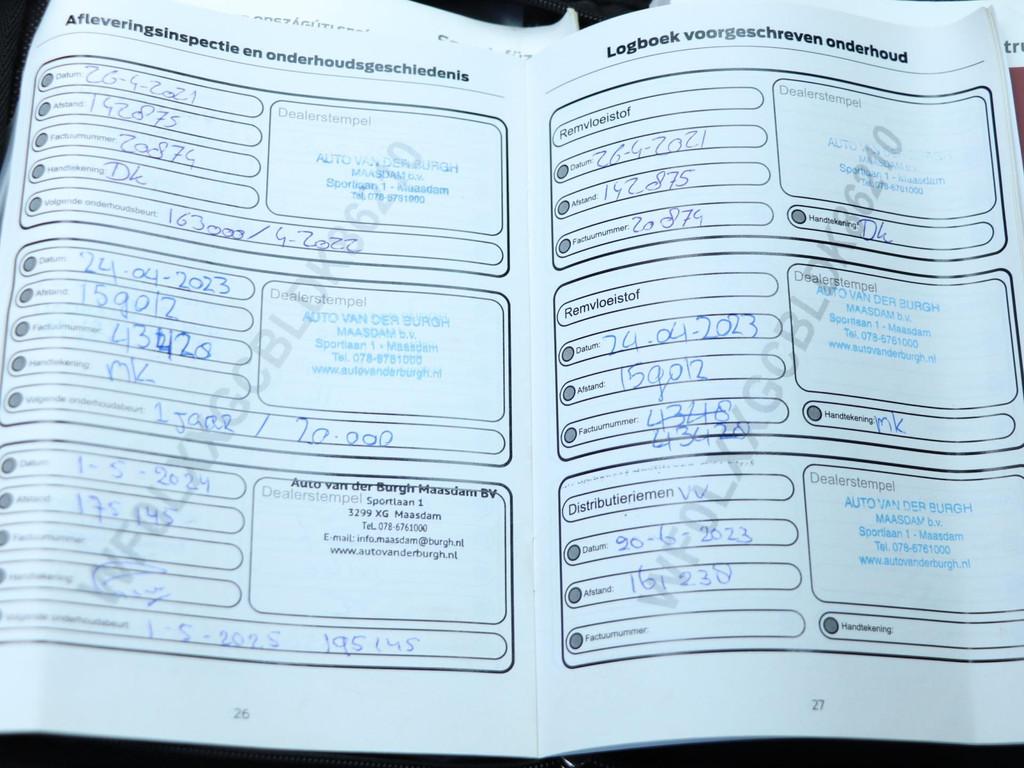 Afleveringsinspectie en onderhoudsgeschiedenis
Datum: 26-4-2021
Afstand: 142875
Factuurnummer: 20874
Handtekening: Dk
Volgende onderhoudsbeurt: 163000 / 4-2022
Dealerstempel
AUTO VAN DER BURGH
MAASDAM b.v.
Sportlaan 1 - Maasdam
Tel. 078-6761000
Datum: 24-04-2023
Afstand: 159012
Factuurnummer: 43420
Handtekening: mk
Volgende onderhoudsbeurt: 1 jaar / 20.000
Dealerstempel
AUTO VAN DER BURGH
MAASDAM b.v.
Sportlaan 1 - Maasdam
Tel. 078-6761000
www.autovanderburgh.nl
Datum: 1-5-2024
Afstand: 175145
Factuurnummer:
Handtekening:
Volgende onderhoudsbeurt: 1-5-2025 195145
Auto van der Burgh Maasdam BV
Dealerstempel
Sportlaan 1
3299 XG Maasdam
Tel. 078-6761000
E-mail: info.maasdam@burgh.nl
www.autovanderburgh.nl
26
Logboek voorgeschreven onderhoud
Remvloeistof
Datum: 26-4-2021
Afstand: 142875
Factuurnummer: 20874
Dealerstempel
AUTO VAN DER BURGH
MAASDAM b.v.
Sportlaan 1 - Maasdam
Tel. 078-6761000
Handtekening: Dk
Remvloeistof
Datum: 24-04-2023
Afstand: 159012
Factuurnummer: 43418
43420
Dealerstempel
AUTO VAN DER BURGH
MAASDAM b.v.
Sportlaan 1 - Maasdam
Tel. 078-6761000
www.autovanderburgh.nl
Handtekening: mk
Distributieriemen VV
Datum: 20-6-2023
Afstand: 161238
Factuurnummer:
Dealerstempel
AUTO VAN DER BURGH
MAASDAM b.v.
Sportlaan 1 - Maasdam
Tel. 078-6761000
www.autovanderburgh.nl
Handtekening:
27